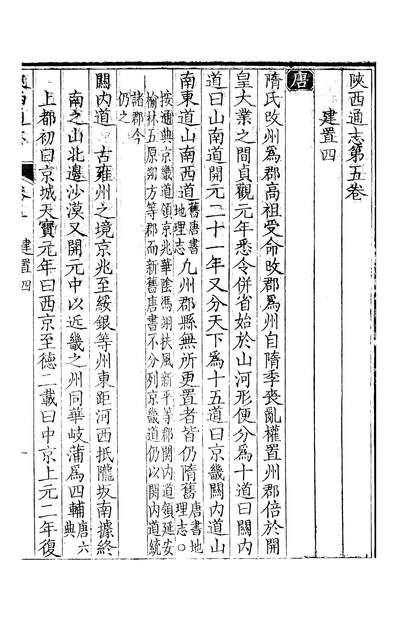 陝西通志第五卷
建置四
唐
隋氏改州爲郡高祖受命改郡爲州自隋季喪亂權置州郡倍於開
皇大業之間貞觀元年悉令併省始於山河形便分爲十道曰關内
道曰山南道開元二十一年又分天下爲十五道曰京畿關内道山
南東道山南西道舊唐書地理志凡州郡縣無所更置者皆仍隋舊唐書地理志○
按通典京畿道領京兆華陰馮翊扶風新平等郡關内道領延安
榆林五原朔方等郡而新舊唐書不分列京畿道仍以關内道統
諸郡今
仍之
關内道　古雍州之境京兆至綏銀等州東距河西抵隴坂南據終
南之山北邊沙漠又開元中以近畿之州同華岐蒲爲四輔唐六典
上都初曰京城天寶元年曰西京至德二載曰中京上元二年復
建置四